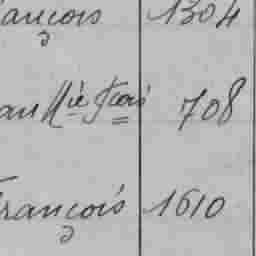 ançois 1304
an Mie Fcois 708
François 1610